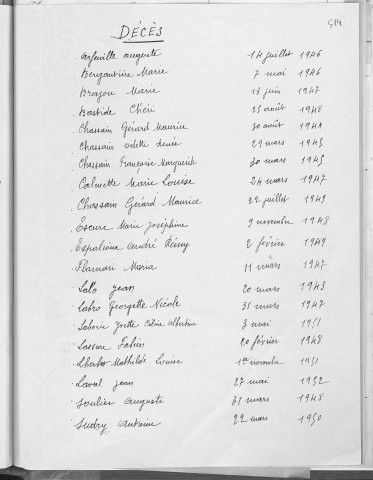 514
DÉCÈS
Arfeuille Auguste 14 juillet 1946
Bergantière Marie 7 mai 1946
Brajou Marie 18 juin 1947
Bastide Chéri 25 août 1948
Chassain Gérard Maurice 30 août
Chassain Odette Denise 29 mars 1945
Chassain Françoise Marguerite 30 mars 1945
Calmette Marie Louise 24 mars 1947
Chassain Gérard Maurice 22 juillet 1949
Escure Marie Joséphine 9 novembre 1948
Espalioux André Rémy 2 février 1949
Flamary Maria 11 mars 1947
Jean 20 mars 1943
Labro Georgette Nicole 31 mars 1947
Laborie Yvette Céline Albertine 3 mai 1951
Lassère Fabien 20 février 1948
Lherbet Mathilde Louise 1er novembre 1951
Laval Jean 27 mai 1952
Soulier Auguste 31 mars 1948
Sudry Antoine 22 mars 1950